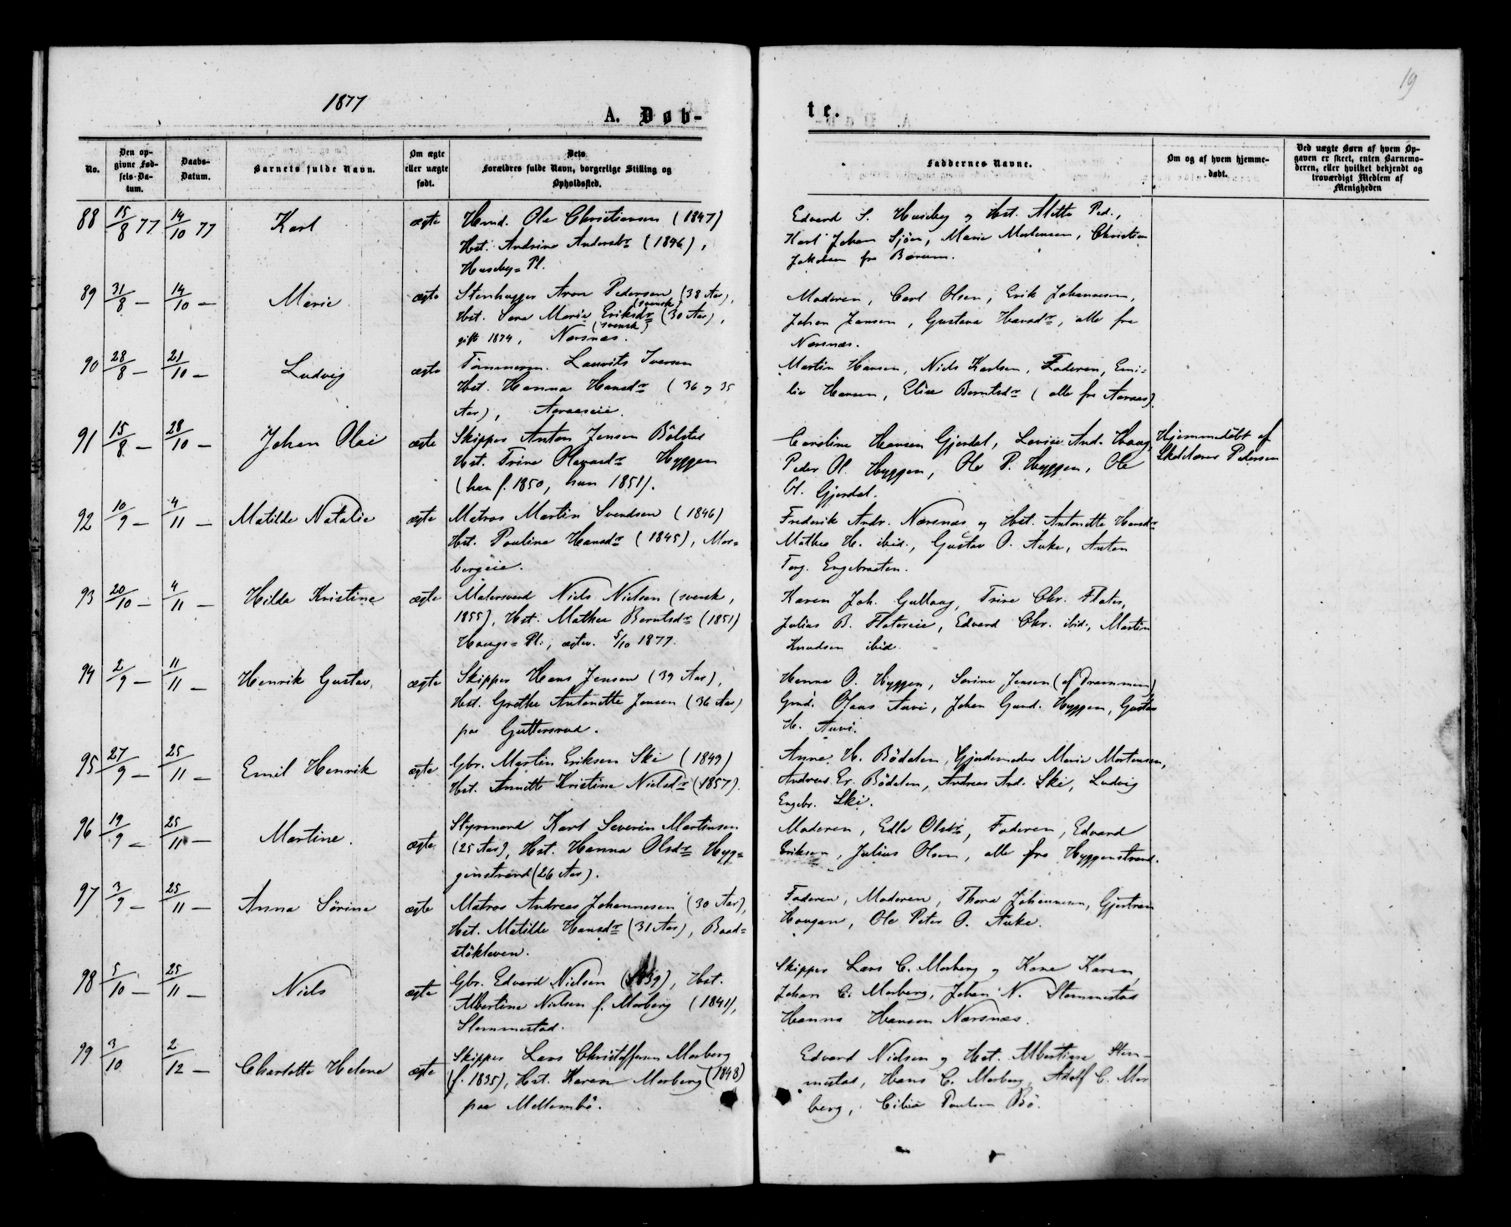 19
1877
A. Døb-
te.
No.
Den op-
givne Fød-
sels-Da-
tum.
Daabs-
Datum.
Barnets fulde Navn.
Om ægte
eller uægte
født.
Dets
Forældres fulde Navn, borgerlige Stilling og
Opholdssted.
Faddernes Navne.
Om og af hvem hjemme-
døbt.
Ved uægte Børn af hvem Op-
gaven er skeet, enten Barnemo-
deren, eller hvilket bekjendt og
troværdigt Medlem af
Menigheden
88 15/8 77 14/10 77 Karl ægte Hmd. Ole Christiansen (1847)
Hst. Andrine Andersdr (1846),
Huseby-Pl.
Edvard S. Huseby og Hst. Mette Ped.,
Karl Johan Sjøn, Marie Mortensen, Christian
Jakobsen fra Bærum.
89 31/8 — 14/10 — Marie ægte Stenhugger Aron Pedersen (38 Aar),
(svensk)
Hst. Sara Maria Eriksdr (30 Aar),
(svensk)
gift 1874, Nærsnæs.
Moderen, Carl Olsen, Erik Johannesen,
Johan Jansen, Gustava Hansdr, alle fra
Nærsnæs.
90 28/8 — 21/10 — Ludvig ægte Tømmerm. Lauritz Iversen
Hst. Hanna Hansdr (36 og 35
Aar), Aaraseie.
Martin Hansen, Niels Karlsen, Faderen, Emi-
lie Hansen, Elise Berntsdr (alle fra Aarnæs).
91 15/8 — 28/10 — Johan Olai ægte Skipper Anton Jensen Bølstad
Hst. Trine Olavesdr Hyggen
(han f. 1850, hun 1851).
Caroline Hansen Gjerdal, Lovise And. Haag,
Peder Ol. Hyggen, Ole P. Hyggen, Ole
Ol. Gjerdal.
Hjemmedøbt af
Skolelærer Pedersen
92 10/9 — 4/11 — Matilde Natalie ægte Matros Martin Svendsen (1846)
Hst. Pauline Hansdr (1845), Mor-
bergeie.
Frederik Andr. Nærsnæs og Hst. Antonette Hansdr
Mathea H. ibid., Gustav O. Auke, Anton
Torg. Engebraaten.
93 20/10 — 4/11 — Hilda Kristine ægte Malersvend Niels Nielsen (svensk,
1855), Hst. Mathea Berntsdr (1851)
Haugs-Pl., ægtev. 5/10 1877.
Karen Joh. Gullaug, Trine Chr. Flater,
Julius B. Flatereie, Edvard Chr. ibid., Martin
Knudsen ibid.
94 2/9 — 11/11 — Henrik Gustav, ægte Skipper Hans Jensen (39 Aar),
Hst. Grethe Antonette Jensen (36 Aar)
paa Guttersrud.
Hanna O. Hyggen, Sørine Jensen (af Drammen),
Gund. Olaus Auvi, Johan Gund. Hyggen, Gustav
H. Auvi.
95 27/9 — 25/11 — Emil Henrik ægte Gbr. Martin Eriksen Ski (1849)
Hst. Annette Kristine Nielsdr (1857).
Anna H. Bødalen, Gjordemoder Marie Mortensen,
Andreas Er. Bødalen, Andreas And. Ski, Ludvig
Engebr. Ski.
96 19/9 — 25/11 — Martine. ægte Styrmand Karl Severin Martinsen
(25 Aar), Hst. Hanna Olsdr Hyg-
genstrand (26 Aar).
Moderen, Edle Olsdr, Faderen, Edvard
Eriksen, Julius Olsen, alle fra Hyggenstrand.
97 3/9 — 25/11 — Anna Sørine ægte Matros Andreas Johannesen (30 Aar),
Hst. Matilde Hansdr (31 Aar), Baad-
støkleven.
Faderen, Moderen, Thora Johannesen, Gjertrud
Haugen, Ole Peter O. Auke.
98 5/10 — 25/11 — Niels ægte Gbr. Edvard Nielsen (1839), Hst.
Albertine Nielsen f. Morberg (1841),
Slemmestad.
Skipper Lars C. Morberg og Kone Karen,
Johan C. Morberg, Johan N. Slemmestad
Hanna Hansen Nærsnæs.
99 3/10 2/12 — Charlotte Helene ægte Skipper Lars Christoffersen Morberg
(f. 1835), Hst. Karen Morberg (1848)
paa Mellembø.
Edvard Nielsen og Hst. Albertine Slem-
mestad, Hans C. Morberg, Adolf C. Mor-
berg, Cilia Paulsen Bø.